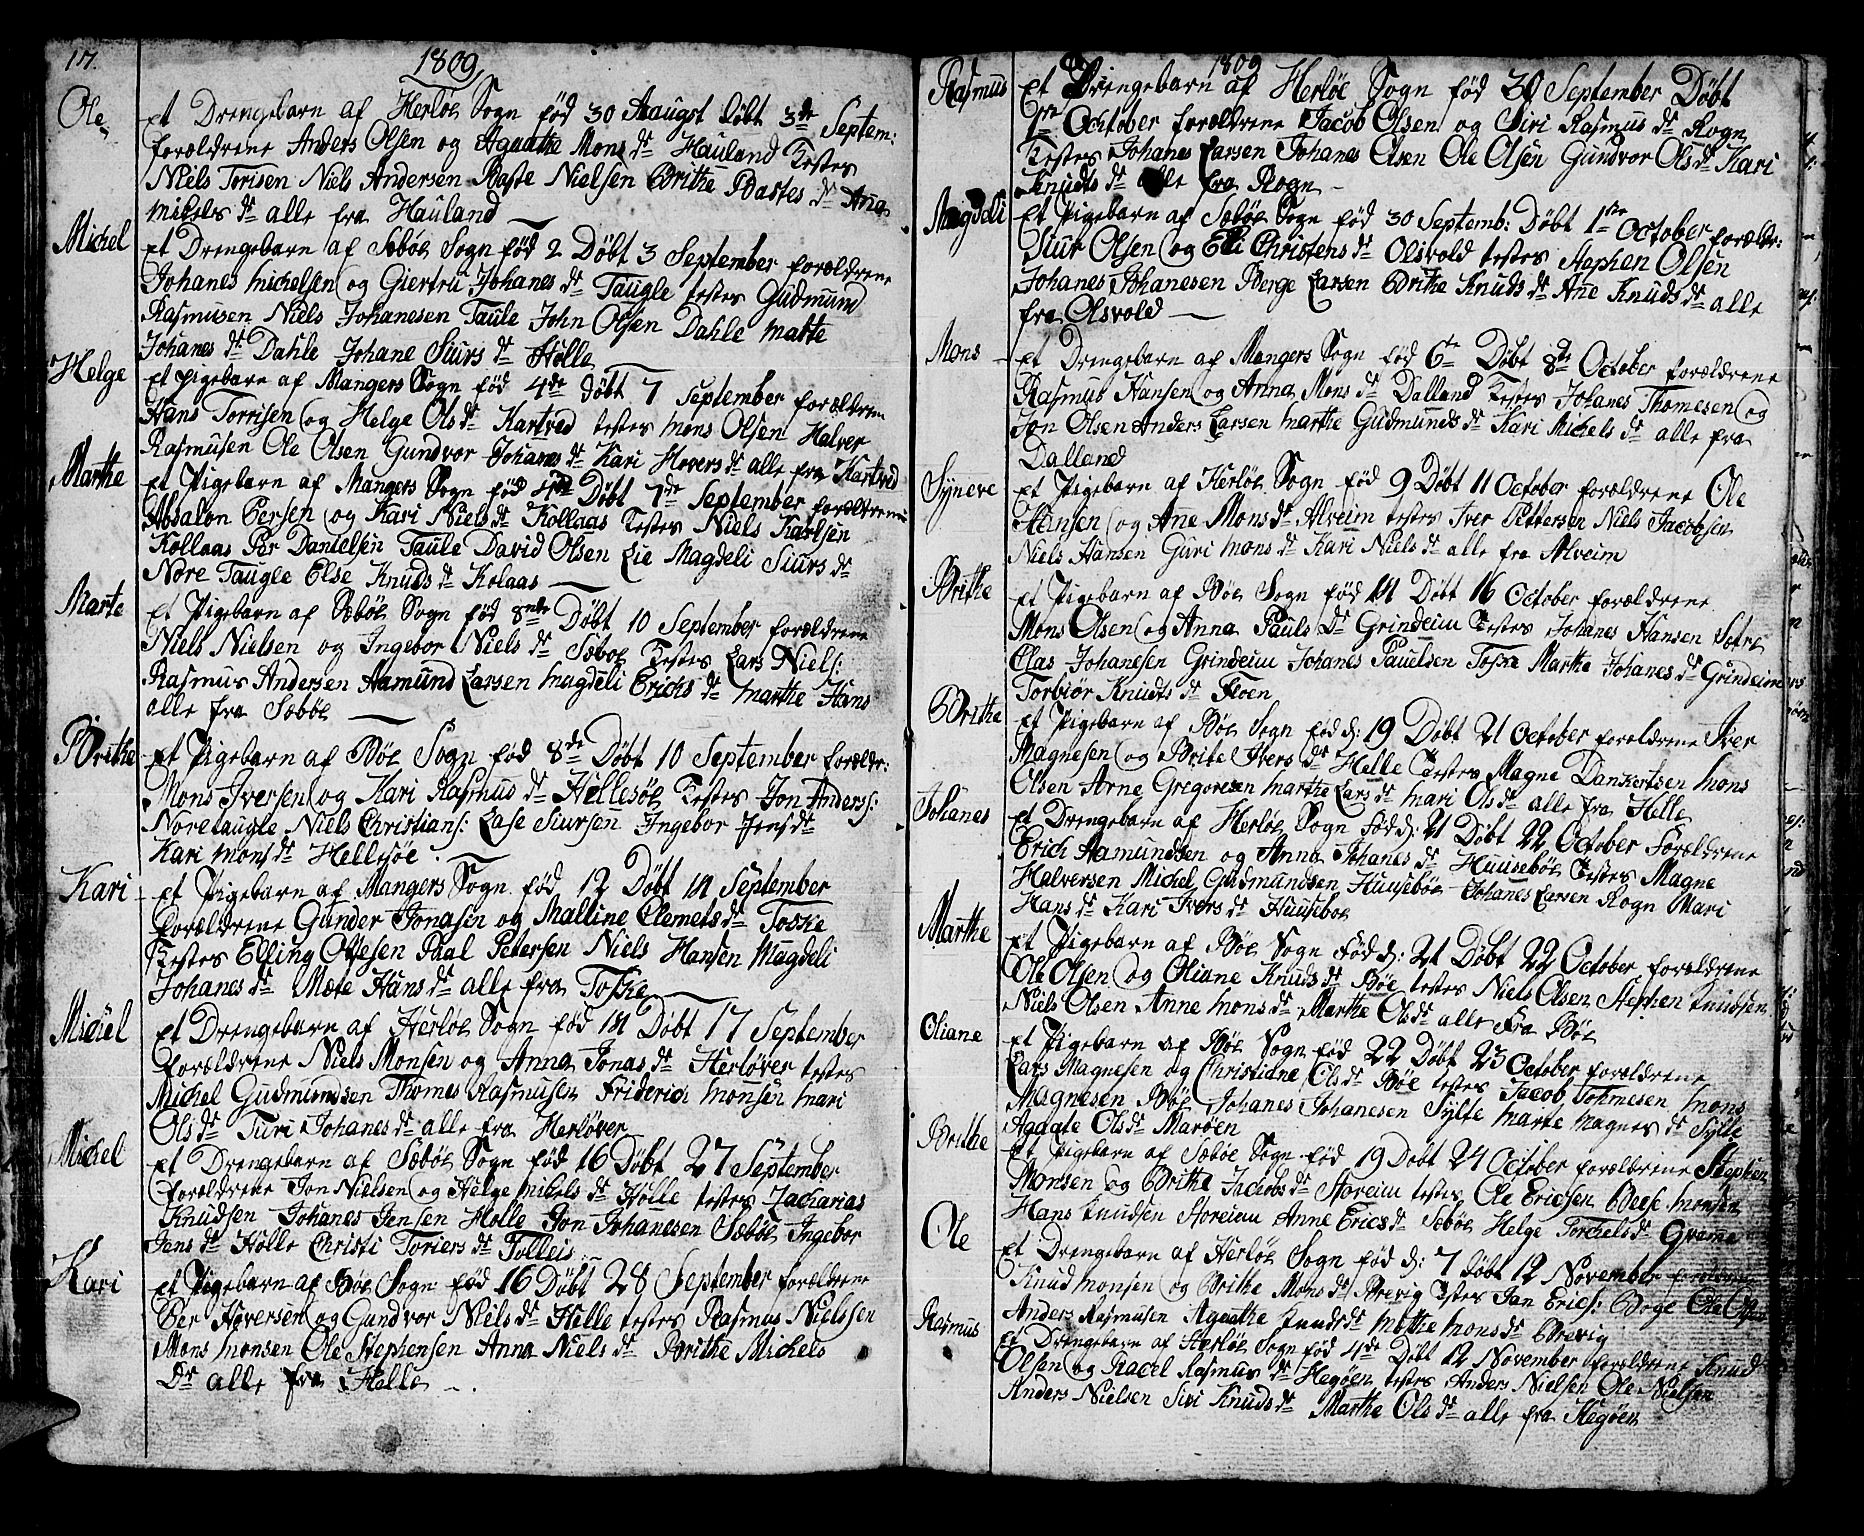 17.
1809
Ole
et Drengebarn af Herlöe Sogn föd 30 Augst döbt 3de Septem:
foræeldrene Anders Olsen og Agaathe Mons dr Hauland testes
Niels Torisen Niels Andersen Baste Nielsen Brithe Bastes dr Ana
Mikels dr alle fra Hauland
Michel
et Drengebarn af Sæböe Sogn föd 2 Döbt 3 September foræeldrene
Johanes Michelsen og Giertru Johanes dr Taugle testes Gudmund
Rasmusen Niels Johanesen Taule John Olsen Dahle Matte
Johanes dr Dahle Johane Siurs dr Hölle
Helge
et pigebarn af Mangers Sogn föd 4de döbt 7 September forældrene
Hans Torrisen og Helge Ols dr Kartved testes Mons Olsen Halver
Rasmusen Ole Olsen Gundvor Johanes dr Kari Hevers dr alle fra Kartved
Marthe
et Pigebarn af Mangers Sogn föd 4de Döbt 7de September forældrene
Absalon Persen og Kari Niels dr Kollaas testes Niels Karlsen
Kollaas Per Danielsen Taule David Olsen Lie Magdeli Siurs dr
Nore Taugle Else Knuds dr Kolaas
Marte
et Pigebarn af Sæböe Sogn föd 8nde Döbt 10 September forældrene
Niels Nielsen og Ingebor Niels dr Söboe testes Lars Niels:
Rasmus Andersen Aamund Larsen Magdeli Erichs dr Marthe Hans
alle fra Söböe
Brithe
et Pigebarn af Böe Sogn föd 8de Döbt 10 September forælder:
Mons Iversen og Kari Rasmus dr Hellesöe testes Jon Anders:
Noretaugle Niels Christians: Lase Siursen Ingebor Jens dr
Kari Mons dr Hellesöe
Kari
et Pigebarn af Mangers Sogn föd 12 Döbt 14 September
forældrene Gunder Jonasen og Malline Clemets dr Toske
testes Elling Ottesen Paal Petersen Niels Hansen Magdeli
Johanes dr Mæte Hans dr alle fra Toske
Michel
et Drengebarn af Herlöe Sogn föd 14 Döbt 17 September
forældrene Niels Monsen og Anna Jonas dr Herlöver testes
Michel Gudmundsen Thomes Rasmusen Friderich Monsen Mari
Ols dr Turi Johanes dr alle fra Herlöver
Michel
et Drengebarn af Sæböe Sogn föd 16 Döbt 27 September
forældrene Jon Nielsen og Helge Mikels dr Hölle testes Zacharias
Knudsen Johanes Jensen Hölle Jon Johanesen Sæböe Ingebor
Jens dr Hölle Christi Toriers dr Tolleis
Kari
et Pigebarn af Böe Sogn föd 16 Döbt 28 September forældrene
Per Haversen og Gundvor Niels dr Helle testes Rasmus Nielssen
Mons Monsen Ole Stephensen Anna Niels dr Brithe Michels
Dr alle fra Helle
1809
Rasmus
et Drengebarn af Herlöe Sogn föd 30 September Döbt
1re October forældrene Jacob Olsen og Siri Rasmus dr Rogn
Testes Johanes Larsen Johanes Olsen Ole Olsen Gundvor Ols dr Kari
Knudts dr alle fra Rogn
Magdeli
et Pigebarn af Sæböe Sogn föd 30 Septemb: Döbt 1ste October forælder:
Siur Olsen og Elli Christens dr Olsvold testes Stephen Olsen
Johanes Johanesen Berge Larsen Brithe Knuds dr Ane Knuds dr alle
fra Olsvold
Mons
et Drengebarn af Mangers Sogn föd 6te Döbt 8de October forældrene
Rasmus Hansen og Anna Mons dr Dalland testes Johanes Thomesen og
Jon Olsen Anders Larsen Marthe Gudmunds dr Kari Michels dr alle fra
Dalland
Syneve
et Pigebarn af Herlöe Sogn föd 9 Döbt 11 October forældrene Ole
Hansen og Ane Mons dr Alveim testes Iver Pettersen Niels Jacobsen
Niels Hansen Guri Mons dr Kari Niels dr alle fra Alveim
Brithe
et Pigebarn af Böe Sogn föd 14 Döbt 16 October forældrene
Mons Olsen og Anna Pauls Dr Grindeim testes Johanes Hansen Sætre
Clas Johanesen Grindeim Johanes Pauelsen Marthe Johanes dr Grindeim
Torbiör Knudts dr Floen
Brithe
et Pigebarn af Böe Sogn föd d: 19 Döbt 21 October forældrene Iver
Magnesen og Brite Ivers dr Helle testes Magne Dankertsen Mons
Olsen Arne Gregoresen Marthe Lars dr Mari Ols dr alle fra Helle
Johanes
et Drengebarn af Herlöe Sogn föd d: 21 Döbt 22 October forældrene
Erich Aamundsen og Anna Johanes dr Huuseböe testes Magne
Halversen Michel Gudmundsen Huuseböe Johanes Larsen Rogn Mari
Hans dr Kari Ivers dr Huuseboe
Marthe
et Pigebarn af Böe Sogn föd d: 21 Döbt 22 October forældrene
Ole Olsen og Oliane Knuds dr Böe testes Niels Olsen Stephen Knudsen
Niels Olsen Anne Mons dr Marthe Ols dr alle fra Böe
Oliane
et Pigebarn af Böe Sogn föd 22 Döbt 23 October forældrene
Lars Magnesen og Christiane Ols dr Böe testes Jacob Tohmesen Mons
Magnesen Böe Johanes Johanesen Sylte Marte Magnes dr Sylte
Agaate Ols dr Maröen
Brithe
et Pigebarn af Sæböe Sogn föd 19 Döbt 24 October forældrene Stephen
Monsen og Brithe Jachobs dr Storeim testes Ole Ericsen Monsen
Hans Knudsen Storeim Anne Erics dr Sæböe Helge Torchels dr
Ole
et Drengebarn af Herlöe Sogn föd d: 7 Döbt 12 November forældrene
Knud Monsen og Brithe Mons dr Brevig testes Jan Erics: Ole
Anders Rasmusen Agaathe Knuds dr Mathe Mons dr Brevig
Rasmus
et Drengebarn af Herlöe Sogn föd 4de Döbt 12 November forældrene Knud
Olsen og Racel Rasmus dr Hegöen testes Anders Nielsen Ole Nielsen
Anders Nielsen Siri Knuds dr Marthe Ols dr alle fra Hegöen